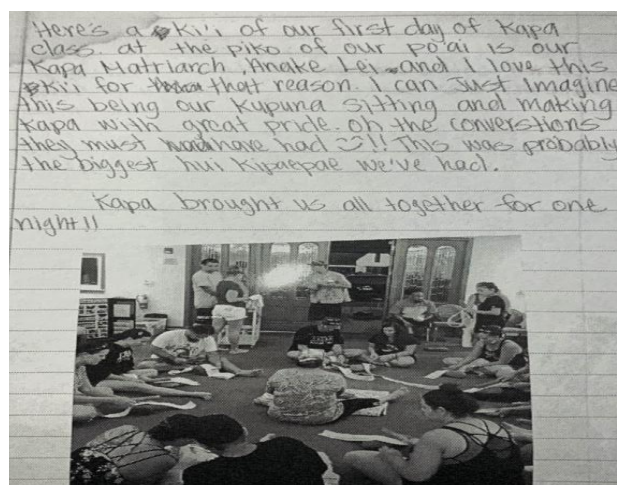 Here's a ki'i of our first day of Kapa
class. at the piko of our po'ai is our
Kapa Matriarch, Anake Lei and I love this
ki'i for that reason. I can just imagine
this being our Kupuna sitting and making
Kapa with great pride. oh the converstions
they must have had !! This was probably
the biggest hui Kipaepae we've had.
Kapa brought us all together for one
night!!